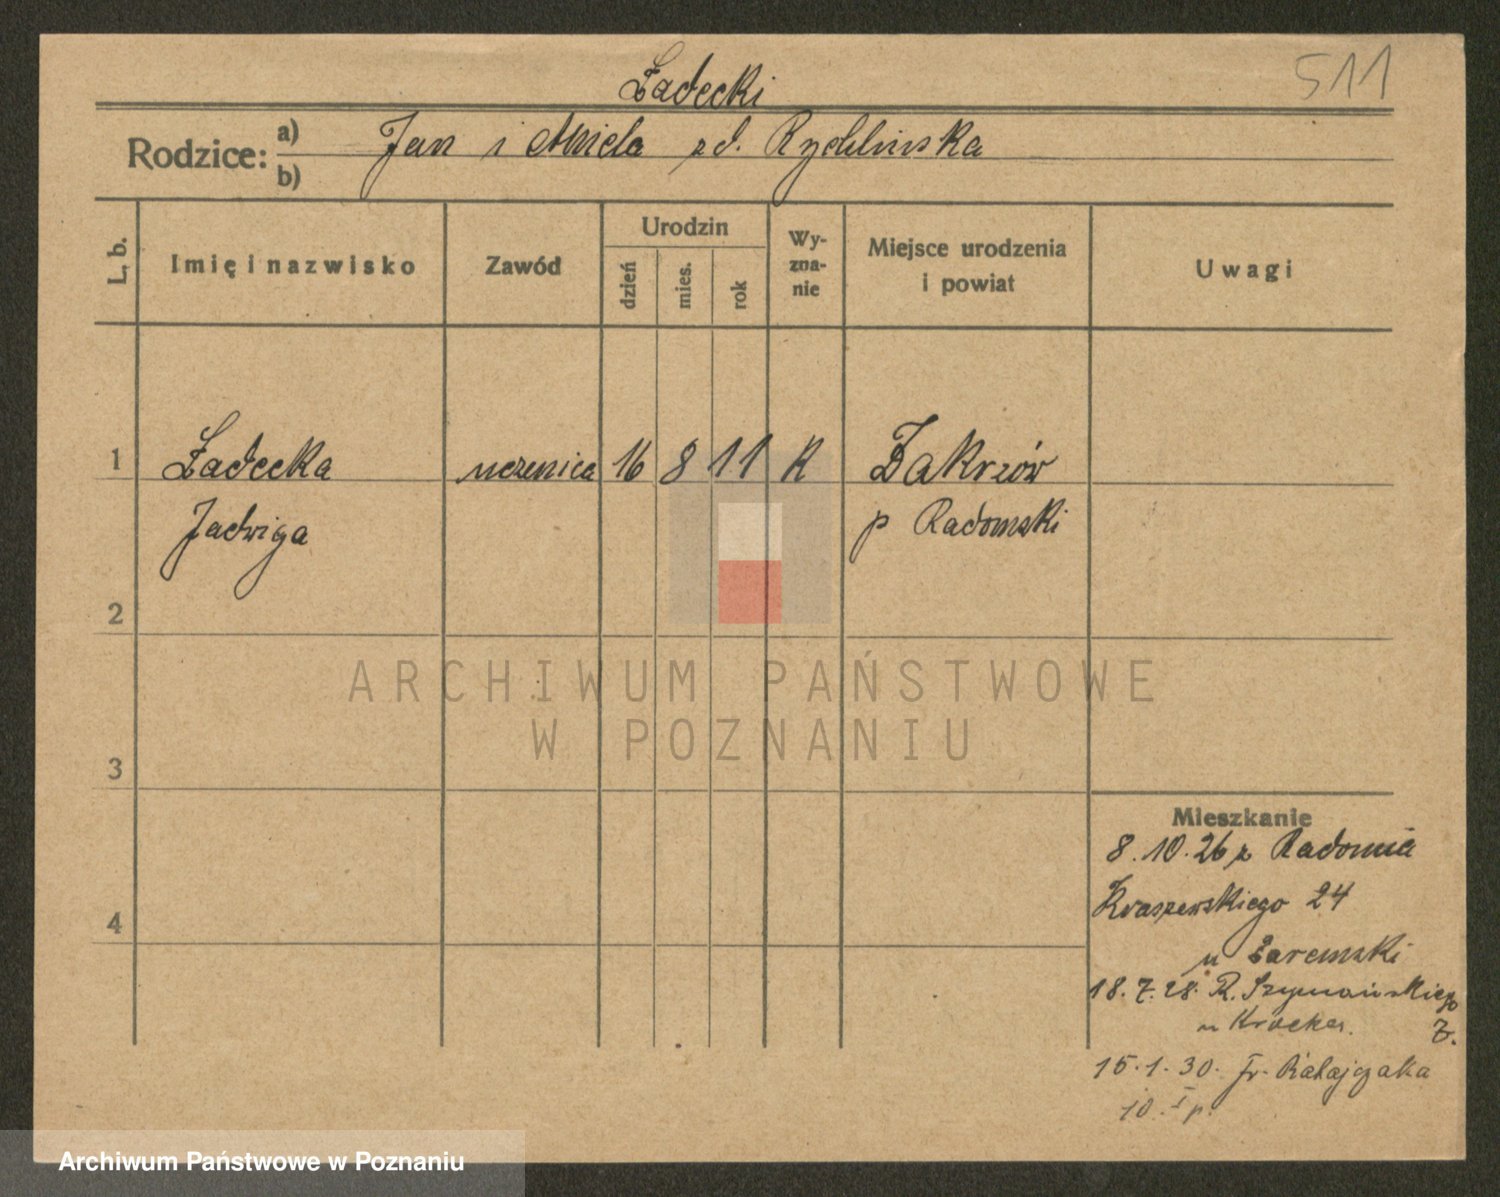 511
Ładecki
Rodzice: a) Jan i Aniela zd. Rychlinska
b)
L. b. Imię i nazwisko Zawód Urodzin dzień mies. rok Wy-zna-nie Miejsce urodzenia i powiat Uwagi
1 Ładecka uczenica 16 8 11 K Zakrzów
Jadwiga p Radomski
2
ARCHIWUM PAŃSTWOWE
W POZNANIU
3
Mieszkanie
8.10.26 z Radomia
Kraszewskiego 24
4
u Zaremski
18.7.28. R. Szymańskiego
u Krocker. 7.
15.1.30. Fr. Ratajczaka
10. I p.
Archiwum Państwowe w Poznaniu